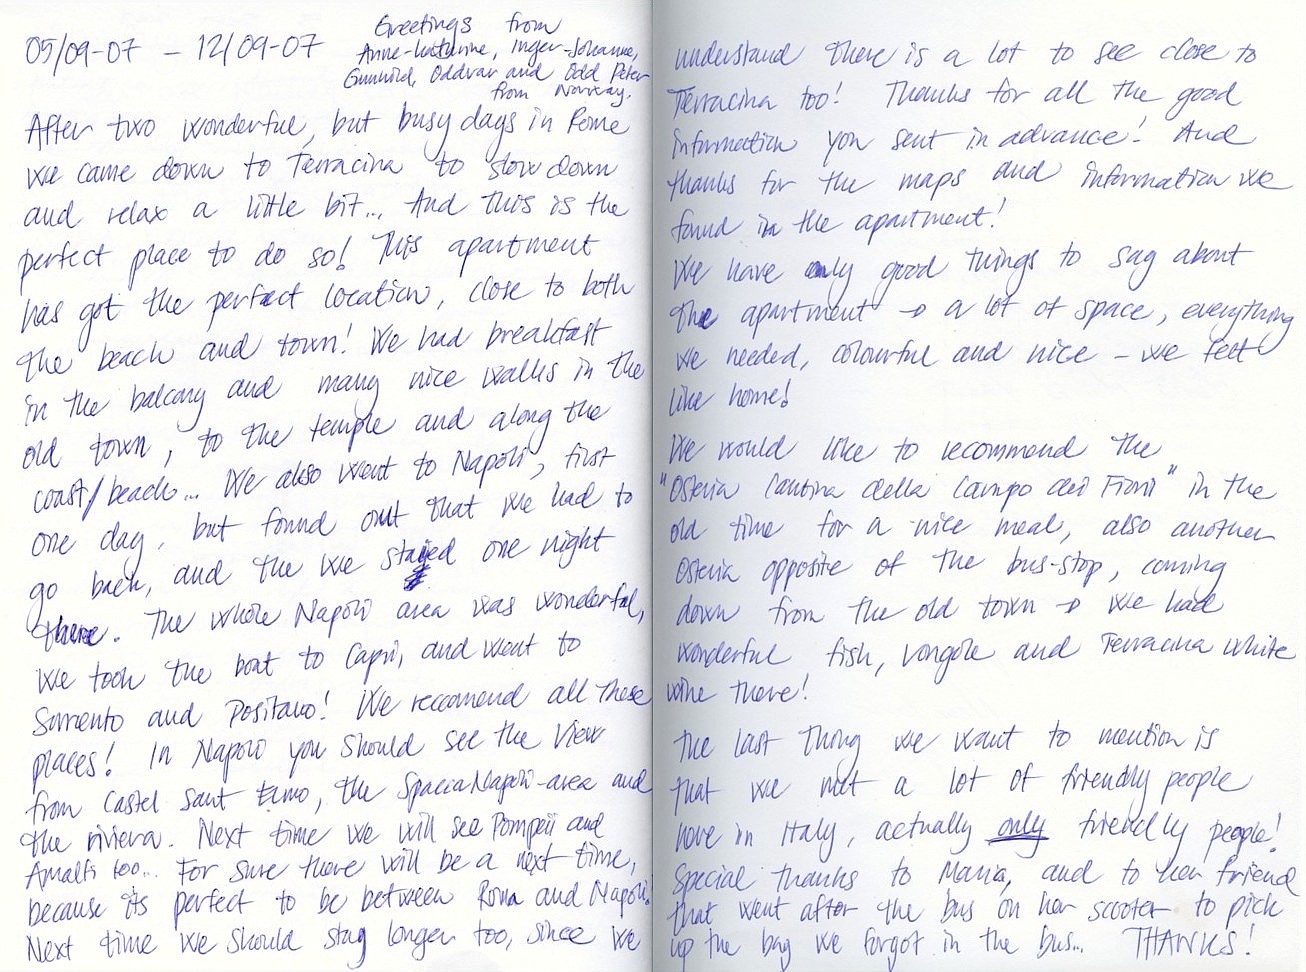 05/09-07 – 12/09-07
Greetings from
Anne-Katherine, Inger-Johanne,
Gunnhild, Oddvar and Odd Peter
from Norway.
After two wonderful, but busy days in Rome
we came down to Terracina to slow down
and relax a little bit... And this is the
perfect place to do so! This apartment
has got the perfect location, close to both
the beach and town! We had breakfast
in the balcony and many nice walks in the
old town, to the temple and along the
coast/beach... We also went to Napoli, first
one day, but found out that we had to
go back, and the we stayed one night
there. The whole Napoli area was wonderful,
we took the boat to Capri, and went to
Sorrento and Positano! We reccomend all these
places! In Napoli you should see the view
from Castel Sant Elmo, the SpaccaNapoli-area and
the riviera. Next time we will see Pompeii and
Amalfi too... For sure there will be a next time,
because its perfect to be between Roma and Napoli!
Next time we should stay longer too, since we
understand there is a lot to see close to
Terracina too! Thanks for all the good
information you sent in advance! And
thanks for the maps and information we
found in the apartment!
We have only good things to say about
the apartment → a lot of space, everything
we needed, colourful and nice – we felt
like home!
We would like to recommend the
"Osteria Cantina della Campo dei Fiori" in the
old time for a nice meal, also another
Osteria opposite of the bus-stop, coming
down from the old town → we had
wonderful fish, vongole and Terracina white
wine there!
The last thing we want to mention is
that we met a lot of friendly people
here in Italy, actually only friendly people!
Special thanks to Maria, and to her friend
that went after the bus on her scooter to pick
up the bag we forgot in the bus... THANKS!